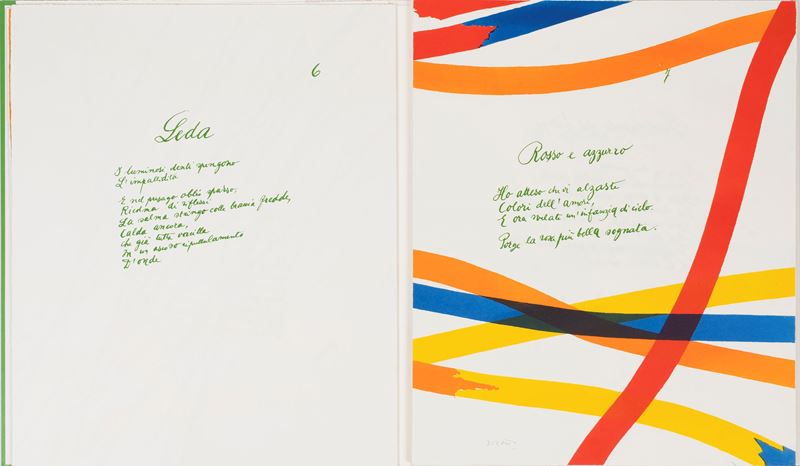 6
Leda
I luminosi denti spengono
L'impallidita
E nel presago oblio sparso,
Ricolma di riflessi
La salma stringo colle braccia fredde,
Calda ancora,
Che già tutta vacilla
In un ascoso ripullulamento
D'onde
7
Rosso e azzurro
Ho atteso che vi alzaste
Colori dell'amore,
E ora svelate un'infanzia di cielo.
Porge la rosa più bella sognata.